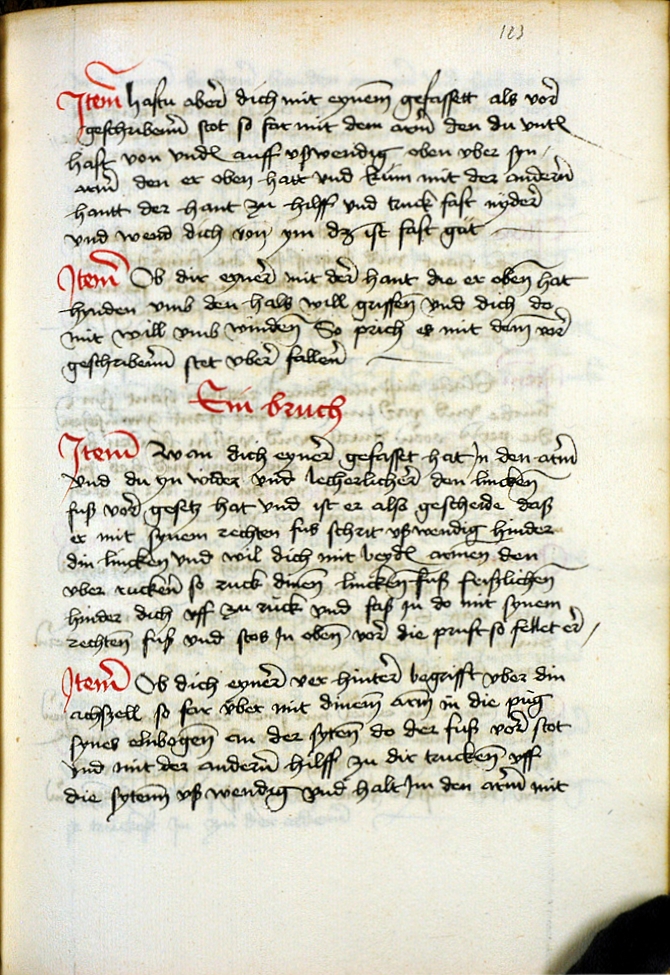 183
Item hastu aber dich mit eynem gefassett als vor
geschribenn stet so far mit dem arm den du vntt
hast von vnd auff vßwendig oben vber syn
arm den er oben hatt vnd kum mit der andern
hantt der hant zu hilff vnd truck fast nyder
vnd wend dich von ym dz ist fast gut
Item Ob dir eyner mit der hant die er oben hat
hynden vmb den hals will griffen vnd dich do
mit will vmb winden So prich es mit dem vor
geschribenn stet vber fallen
Ein bruch
Item Wan dich eyner gefasset hat Jn den arm
vnd du yn wider vnd lecherlicher den lincken
fuß vor gesetz hat vnd ist er alß gescheide daß
er mit synem rechten fus schrit vßwendig hinder
din lincken vnd wil dich mit beyde armen den
vber rucken so ruck dinen lincken fuß feißlichen
hinder dich vff zu ruck vnd faß in do mit synem
rechten fuß vnd stos Jn oben vor die prust so fellet er
Item Ob dich eyner ver hinter begrifft vber din
achszell so far vber mit dinem arm in die pug
synes elnbogen an der syten do der fuß vor stot
vnd mit der andern hilff zu dir trucken vff
die sytenn vß wendig vnd halt Jm den arm mit